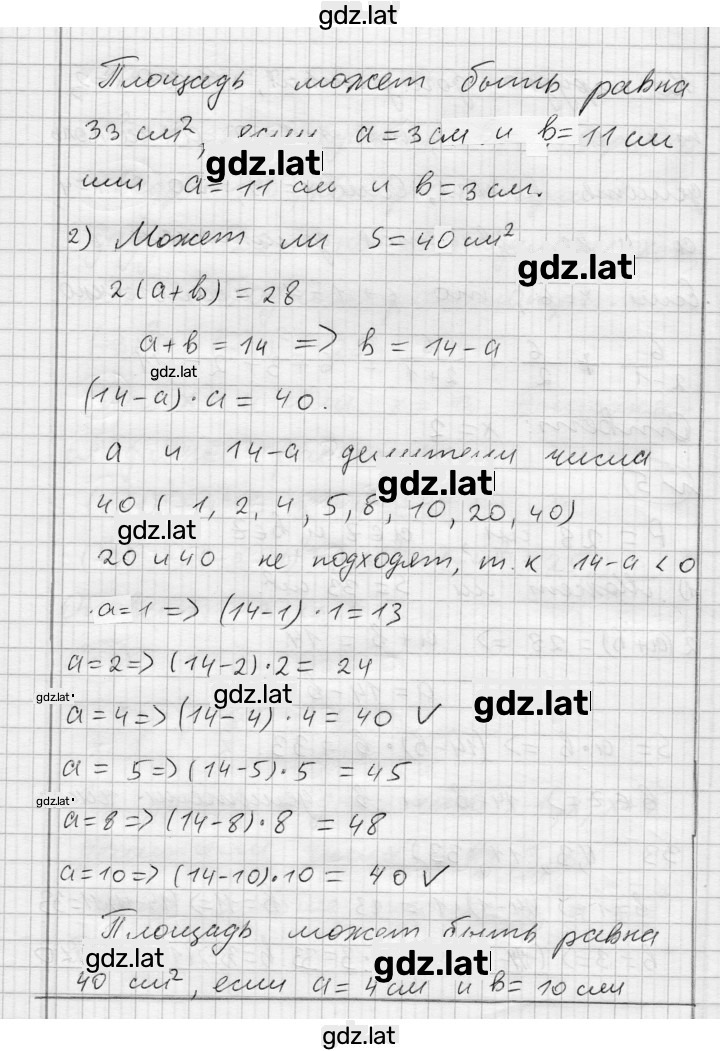 gdz.lat
Площадь может быть равна
33 см², если a = 3 см и b = 11 см
gdz.lat
или a = 11 см и b = 3 см.
2) Может ли S = 40 см²
gdz.lat
2(a+b) = 28
a + b = 14 => b = 14 - a
gdz.lat
(14-a)·a = 40.
a и 14-a делители числа
gdz.lat
40 ( 1, 2, 4, 5, 8, 10, 20, 40)
gdz.lat
20 и 40 не подходят, т.к 14-a < 0
a = 1 => (14-1)·1 = 13
a = 2 => (14-2)·2 = 24
gdz.lat gdz.lat gdz.lat
a = 4 => (14-4)·4 = 40 ✓
a = 5 => (14-5)·5 = 45
gdz.lat
a = 8 => (14-8)·8 = 48
a = 10 => (14-10)·10 = 40 ✓
Площадь может быть равна
gdz.lat gdz.lat
40 см², если a = 4 см и b = 10 см
gdz.lat